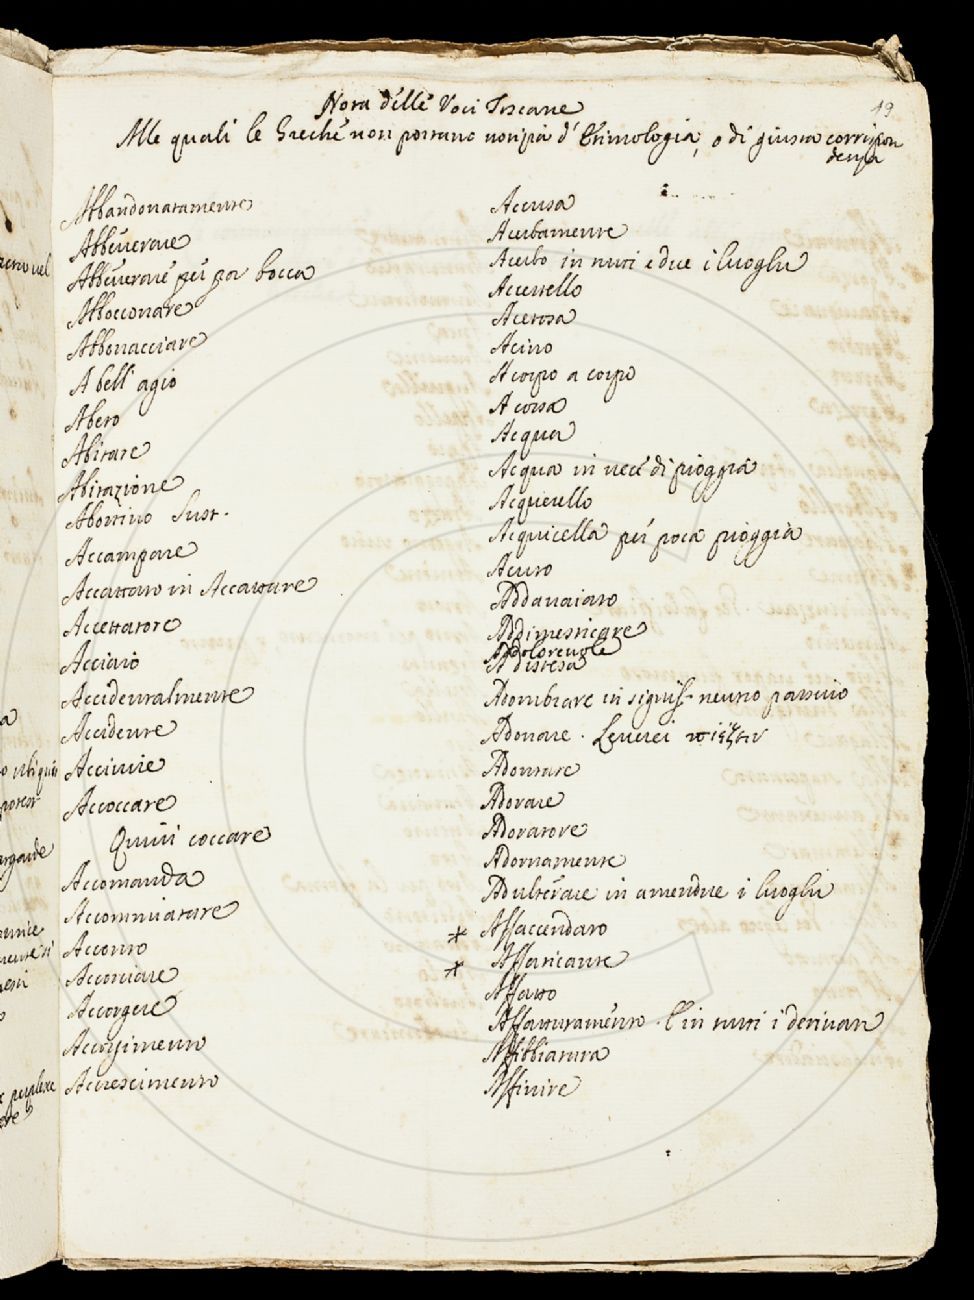 Nota delle Voci Toscane
19
Alle quali le Greche non portano notizia d'Etimologia, o di giusta corrispon
denza
Abbandonatamente
Abbeverare
Abbeverare per por bocca
Abboccare
Abbonacciare
A bell' agio
Abeto
Abitare
Abitazione
Abortivo Sust.
Accampare
Accattato in Accattare
Accettatore
Acciaio
Accidentalmente
Accidente
Accoccare
Quivi coccare
Accomanda
Accommiatare
Acconto
Acconciare
Accorgere
Accorgimento
Accrescimento
Accusa
Acerbamente
Acerbo in tutti e due i luoghi
Acetosa
Acino
A corpo a corpo
A corsa
Acqua
Acqua in vece di pioggia
Acquerello
Acquicella per poca pioggia
Acuto
Addanaiato
Addimesticare
Addolorevole
A distesa
Adombrare in signif. neutro passivo
Adonare. Leverei
Adontare
Adorare
Adoratore
Adornamente
Adulterare in amendue i luoghi
* Affaccendato
* Affaticante
Affatto
Affatturamento. E in tutti i derivati
Affibbiatura
Affinire